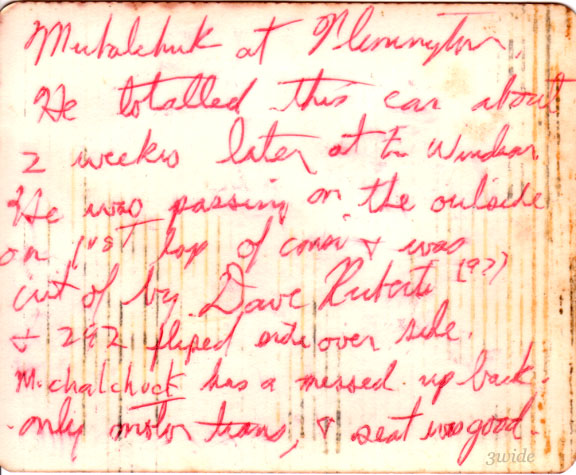 Mihalchuk at Flemington.
He totalled this car about
2 weeks later at E. Windsor.
He was passing on the outside
on 1st lap of consi & was
cut of by Dave Roberts (9??)
& 292 fliped side over side.
Michalchuck has a messed up back.
only motor trans, & seat was good.
3wide